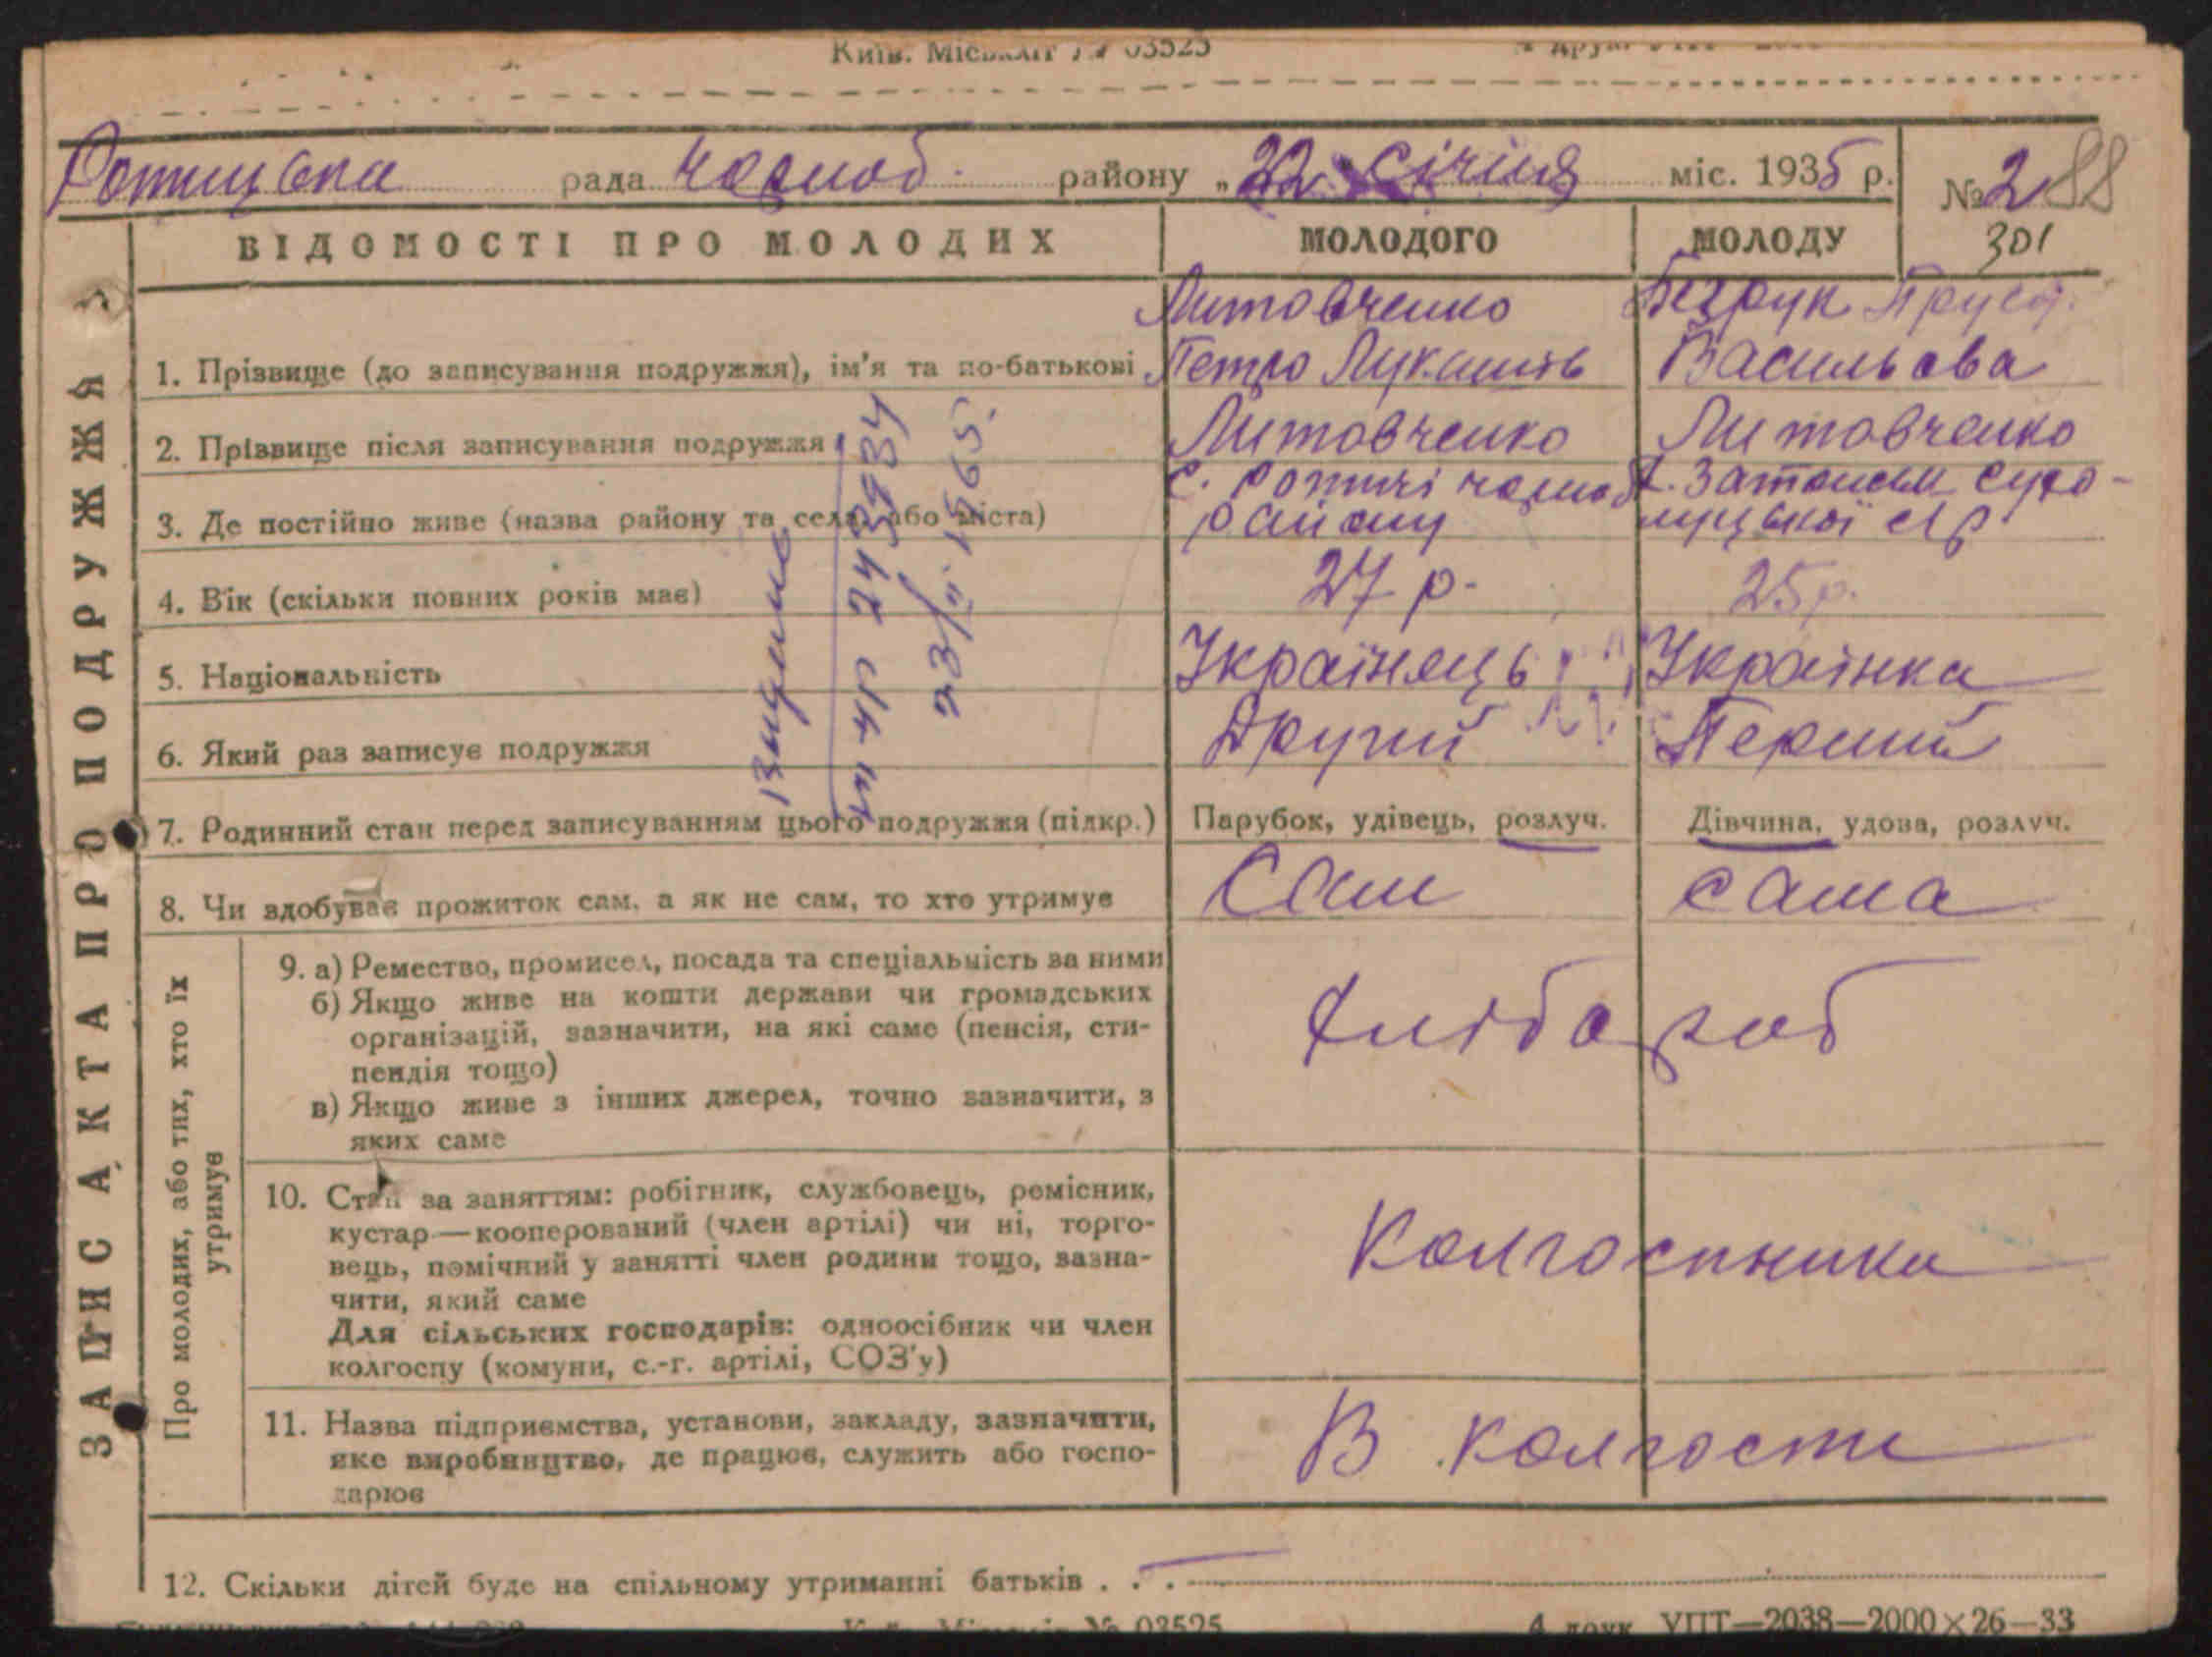 Київ. Міськліт № 03525
Ротицька рада Чорноб. району „22" Січня міс. 1935 р. № 2 88
301
ЗАПИС АКТА ПРО ПОДРУЖЖЯ
ВІДОМОСТІ ПРО МОЛОДИХ МОЛОДОГО МОЛОДУ
1. Прізвище (до записування подружжя), ім'я та по-батькові Литовченко Петро Лукашів Безрук Васильова
2. Прізвище після записування подружжя Литовченко Литовченко
3. Де постійно живе (назва району та села або міста) с. Ротичі Чорноб району
4. Вік (скільки повних років має) 27 р. 25 р.
5. Національність Українець Українка
6. Який раз записує подружжя Другий Перший
7. Родинний стан перед записуванням цього подружжя (підкр.) Парубок, удівець, розлуч. Дівчина, удова, розлуч.
8. Чи здобував прожиток сам, а як не сам, то хто утримує Сам сама
Про молодих, або тих, хто їх утримує
9. а) Ремество, промисел, посада та спеціальність за ними
б) Якщо живе на кошти держави чи громадських
організацій, зазначити, на які саме (пенсія, сти-
пендія тощо)
в) Якщо живе з інших джерел, точно зазначити, з
яких саме
Хлібороб
10. Стан за заняттям: робітник, службовець, ремісник,
кустар—кооперований (член артілі) чи ні, торго-
вець, помічний у занятті член родини тощо, зазна-
чити, який саме
Для сільських господарів: одноосібник чи член
колгоспу (комуни, с.-г. артілі, СОЗ'у)
Колгоспники
11. Назва підприємства, установи, закладу, зазначити,
яке виробництво, де працює, служить або госпо-
дарює
В колгоспі
12. Скільки дітей буде на спільному утриманні батьків . . .
Видано
III ЧР 243934
23/II-1965.
№ 03525 4 друк. УПТ—2038—2000×26—33